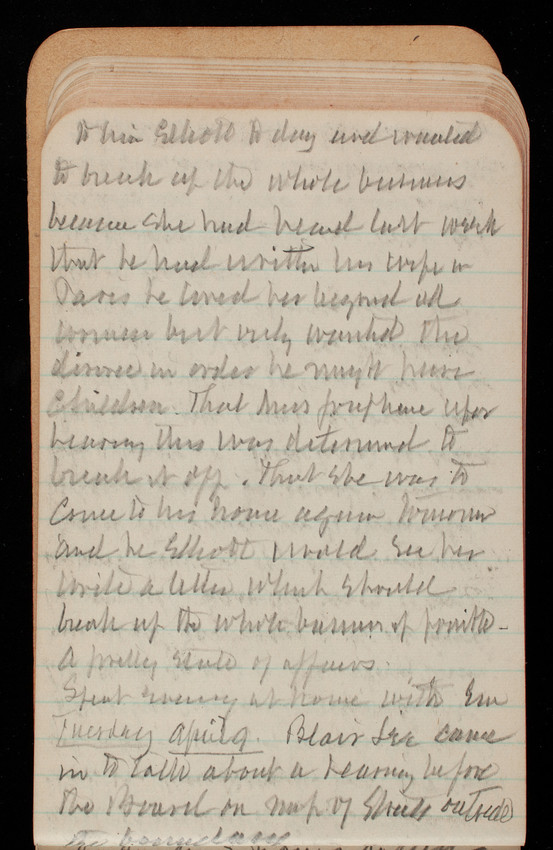 to him Elliott to day and wanted
to break up the whole business
because she had heard last week
that he had written his wife in
Paris he loved her beyond all
women but only wanted the
divorce in order he might have
children. That Miss upon
hearing this was determined to
break it off. That she was to
come to his house again tomorrow
and he Elliott would see her
write a letter which should
break up the whole business if possible -
A pretty state of affairs.
Spent evening at home with Em
Tuesday April 9. Blair Lee came
in to talk about a hearing before
the Board on map of Streets outside
the boundary